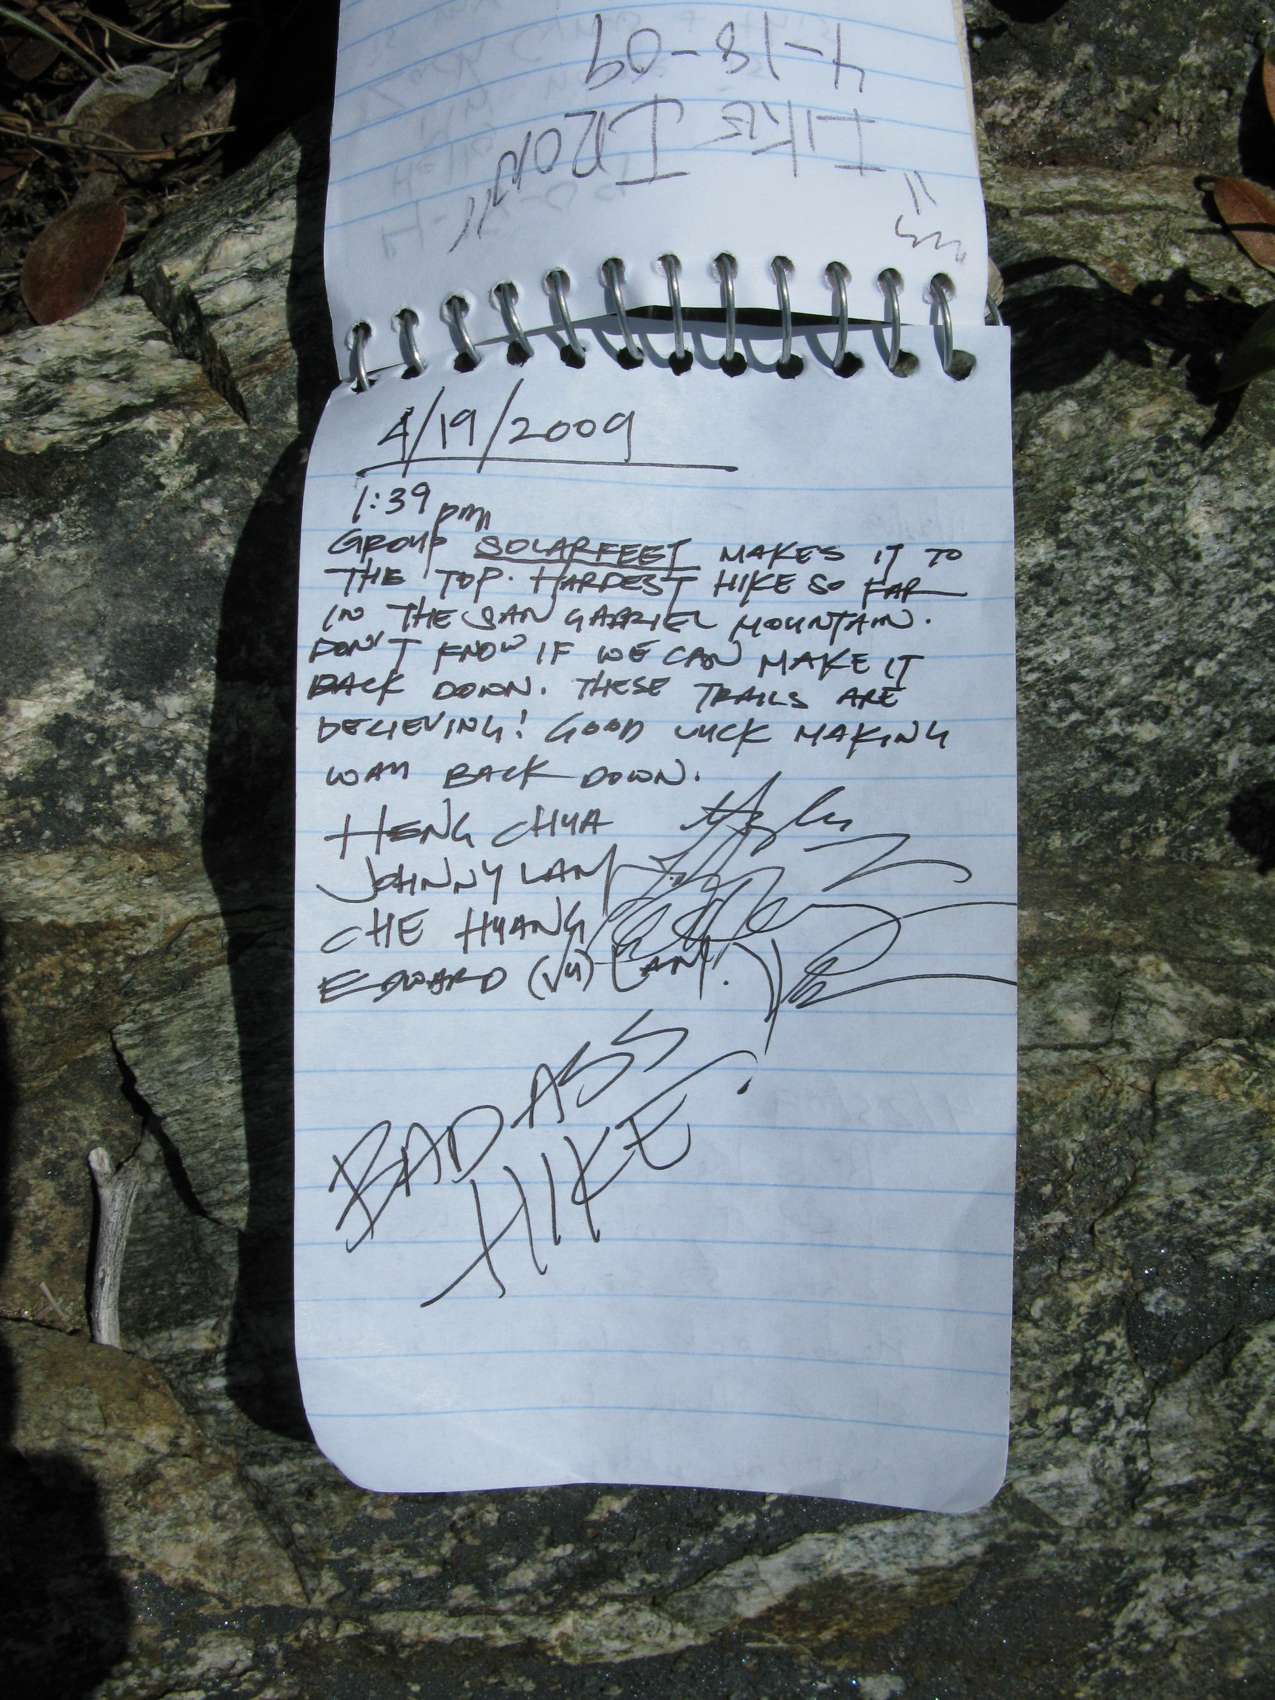 4-18-09
I LIKE IRON
4/19/2009
1:39 pm
GROUP SOLARFEET MAKES IT TO
THE TOP. HARDEST HIKE SO FAR
IN THE SAN GABRIEL MOUNTAIN.
DON'T KNOW IF WE CAN MAKE IT
BACK DOWN. THESE TRAILS ARE
DECIEVING! GOOD LUCK MAKING
WAY BACK DOWN.
HENG CHUA
JOHNNY LAM
CHE HUANG
EDWARD (VU) LAM.
BAD ASS
HIKE!